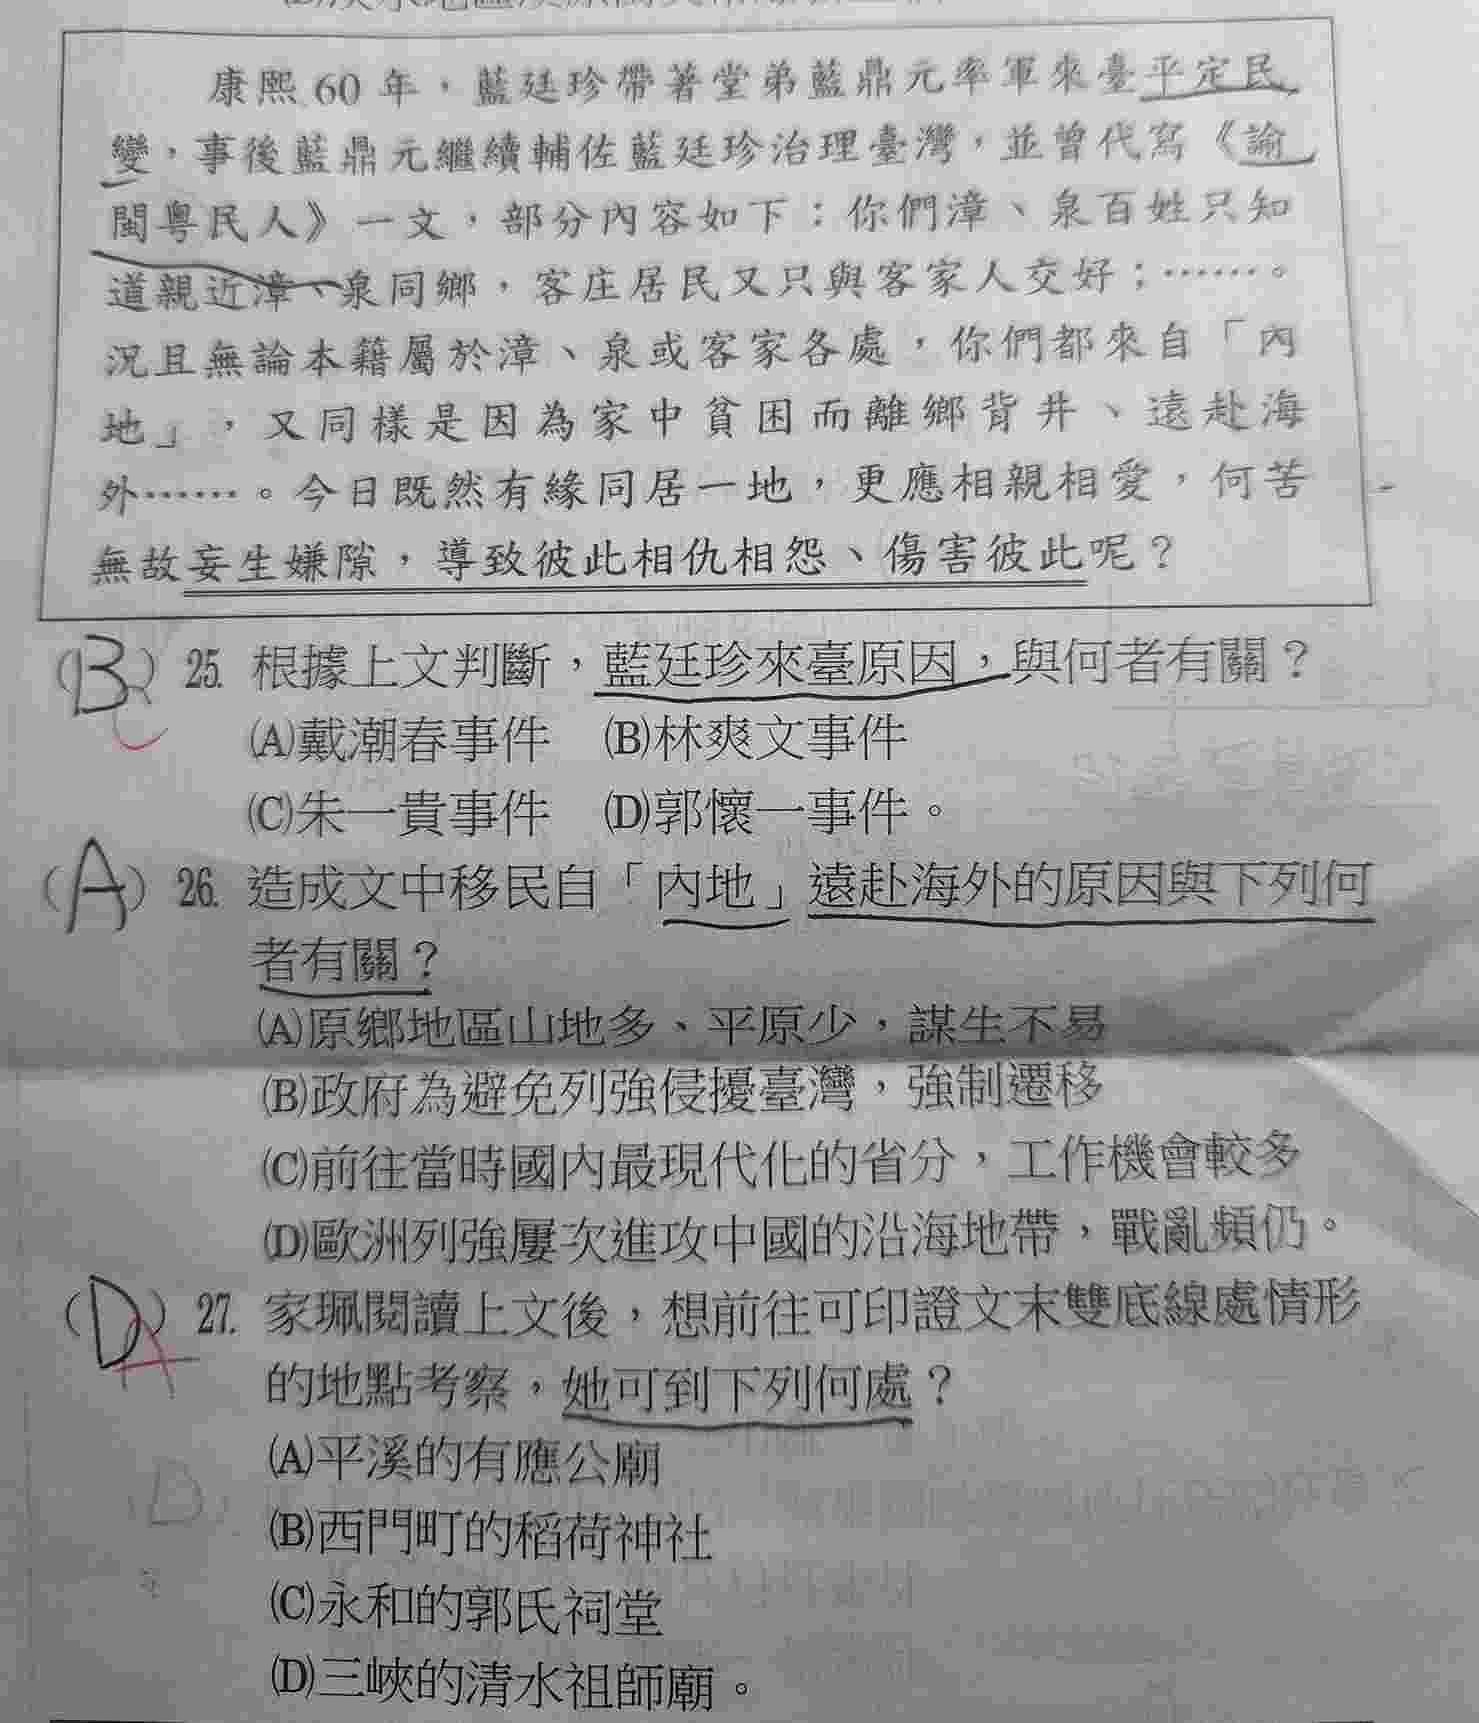 康熙 60 年，藍廷珍帶著堂弟藍鼎元率軍來臺平定民
變，事後藍鼎元繼續輔佐藍廷珍治理臺灣，並曾代寫《諭
閩粵民人》一文，部分內容如下：你們漳、泉百姓只知
道親近漳、泉同鄉，客庄居民又只與客家人交好；……。
況且無論本籍屬於漳、泉或客家各處，你們都來自「內
地」，又同樣是因為家中貧困而離鄉背井、遠赴海
外……。今日既然有緣同居一地，更應相親相愛，何苦
無故妄生嫌隙，導致彼此相仇相怨、傷害彼此呢？
(B) 25. 根據上文判斷，藍廷珍來臺原因，與何者有關？
C
(A)戴潮春事件 (B)林爽文事件
(C)朱一貴事件 (D)郭懷一事件。
(A) 26. 造成文中移民自「內地」遠赴海外的原因與下列何
者有關？
(A)原鄉地區山地多、平原少，謀生不易
(B)政府為避免列強侵擾臺灣，強制遷移
(C)前往當時國內最現代化的省分，工作機會較多
(D)歐洲列強屢次進攻中國的沿海地帶，戰亂頻仍。
(D) 27. 家珮閱讀上文後，想前往可印證文末雙底線處情形
A
的地點考察，她可到下列何處？
(A)平溪的有應公廟
(B)西門町的稻荷神社
(C)永和的郭氏祠堂
(D)三峽的清水祖師廟。